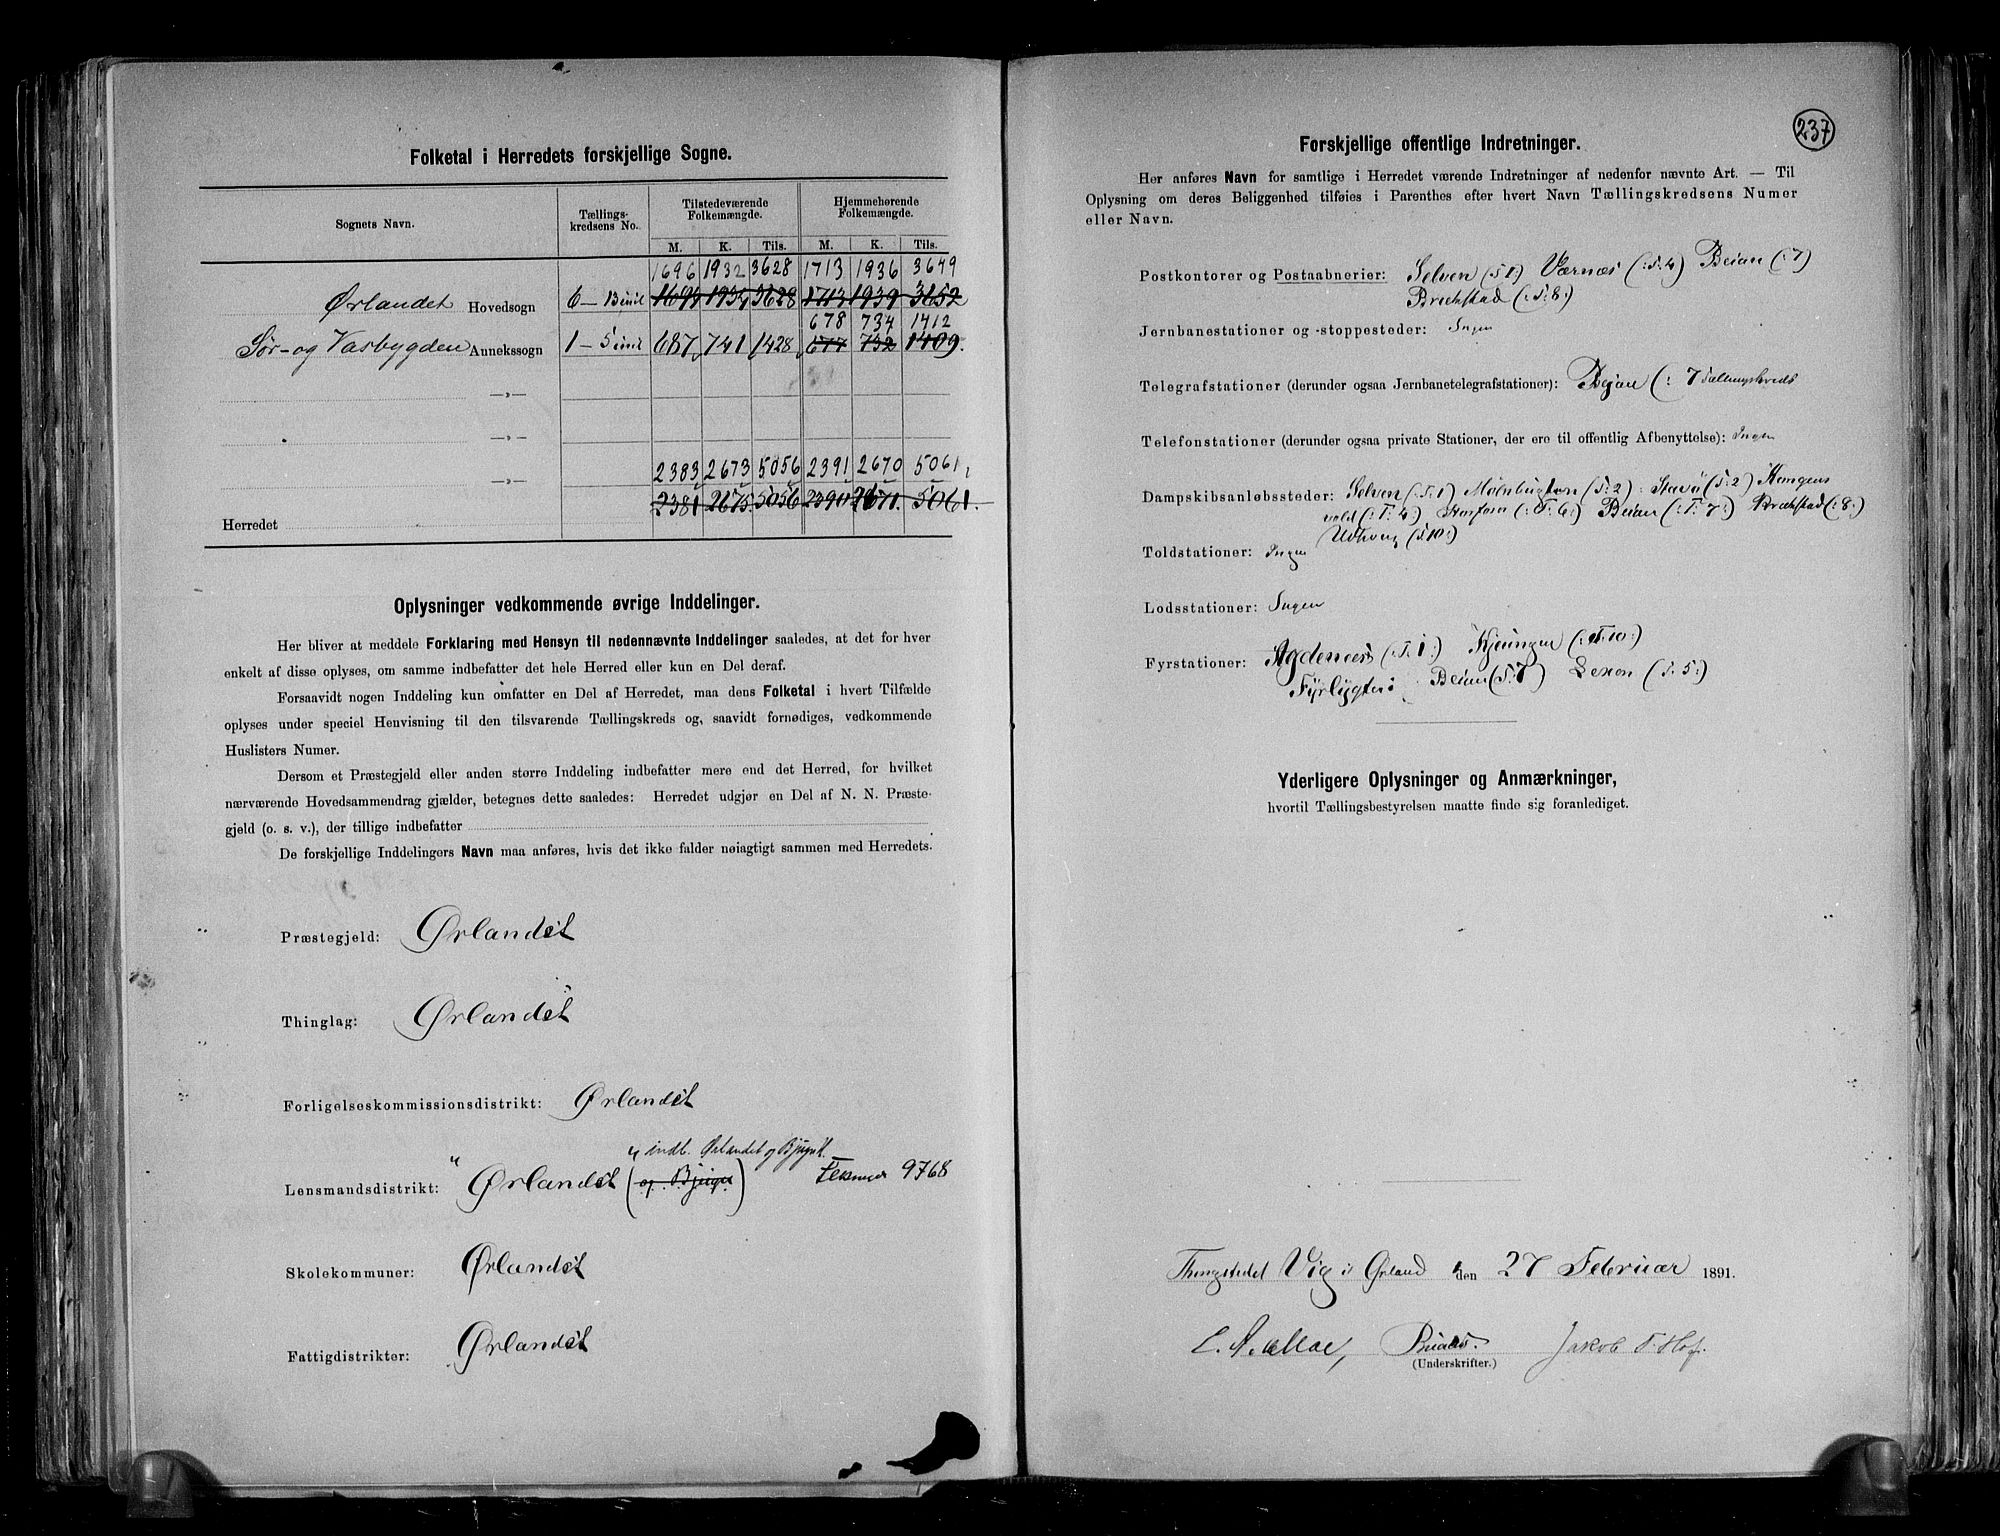 Folketal i Herredets forskjellige Sogne.
Sognets Navn.
Tællings-
kredsens No.
Tilstedeværende
Folkemængde.
Hjemmehørende
Folkemængde.
M. K. Tils. M. K. Tils.
1696 1932 3628 1713 1936 3649
Ørlandet Hovedsogn 6 – 13 incl
678 734 1412
Sør- og Vasbygden Annekssogn 1 – 5 incl 687 741 1428 677 732 1409.
—»—
—»—
2383 2673 5056 2391 2670 5061
—»—
Herredet 2381 2675 5056 2390 2671. 5061.
Oplysninger vedkommende øvrige Inddelinger.
Her bliver at meddele Forklaring med Hensyn til nedennævnte Inddelinger saaledes, at det for hver
enkelt af disse oplyses, om samme indbefatter det hele Herred eller kun en Del deraf.
Forsaavidt nogen Inddeling kun omfatter en Del af Herredet, maa dens Folketal i hvert Tilfælde
oplyses under speciel Henvisning til den tilsvarende Tællingskreds og, saavidt fornødiges, vedkommende
Huslisters Numer.
Dersom et Præstegjeld eller anden større Inddeling indbefatter mere end det Herred, for hvilket
nærværende Hovedsammendrag gjælder, betegnes dette saaledes: Herredet udgjør en Del af N. N. Præste-
gjeld (o. s. v.), der tillige indbefatter
De forskjellige Inddelingers Navn maa anføres, hvis det ikke falder nøiagtigt sammen med Herredets.
Præstegjeld: Ørlandet
Thinglag: Ørlandet
Forligelseskommissionsdistrikt: Ørlandet
" indb. Ørlandet og Bjugn
Lensmandsdistrikt: " Ørlandet (og Bjugn) 9768
Skolekommuner: Ørlandet
Fattigdistrikter: Ørlandet
237
Forskjellige offentlige Indretninger.
Her anføres Navn for samtlige i Herredet værende Indretninger af nedenfor nævnte Art. — Til
Oplysning om deres Beliggenhed tilføies i Parenthes efter hvert Navn Tællingskredsens Numer
eller Navn.
Postkontorer og Postaabnerier: Selven (T. 1:) Værnes (: T. 4) Beian (: 7)
Brekstad (: T. 8:)
Jernbanestationer og -stoppesteder: Ingen
Telegrafstationer (derunder ogsaa Jernbanetelegrafstationer): Bejan (: 7 Tællingskreds
Telefonstationer (derunder ogsaa private Stationer, der ere til offentlig Afbenyttelse): Ingen
Dampskibsanløbssteder: Selven (: T. 1) Mølnbugten (T: 2) (T: 2) Kongens
vold (: T. 4) (: T. 6:) Beian (: T. 7:) Brekstad (: 8:)
Uthaug (T. 10:)
Toldstationer: Ingen
Lodsstationer: Ingen
Fyrstationer: Agdenes (: T. 1:) Kjeungen (: T. 10:)
Fyrlygter: Beian (T. 7) Lexen (T. 5:)
Yderligere Oplysninger og Anmærkninger,
hvortil Tællingsbestyrelsen maatte finde sig foranlediget.
Thingstedet Vig i Ørland den 27 Februar 1891.
Jakob T. Hof.
(Underskrifter.)